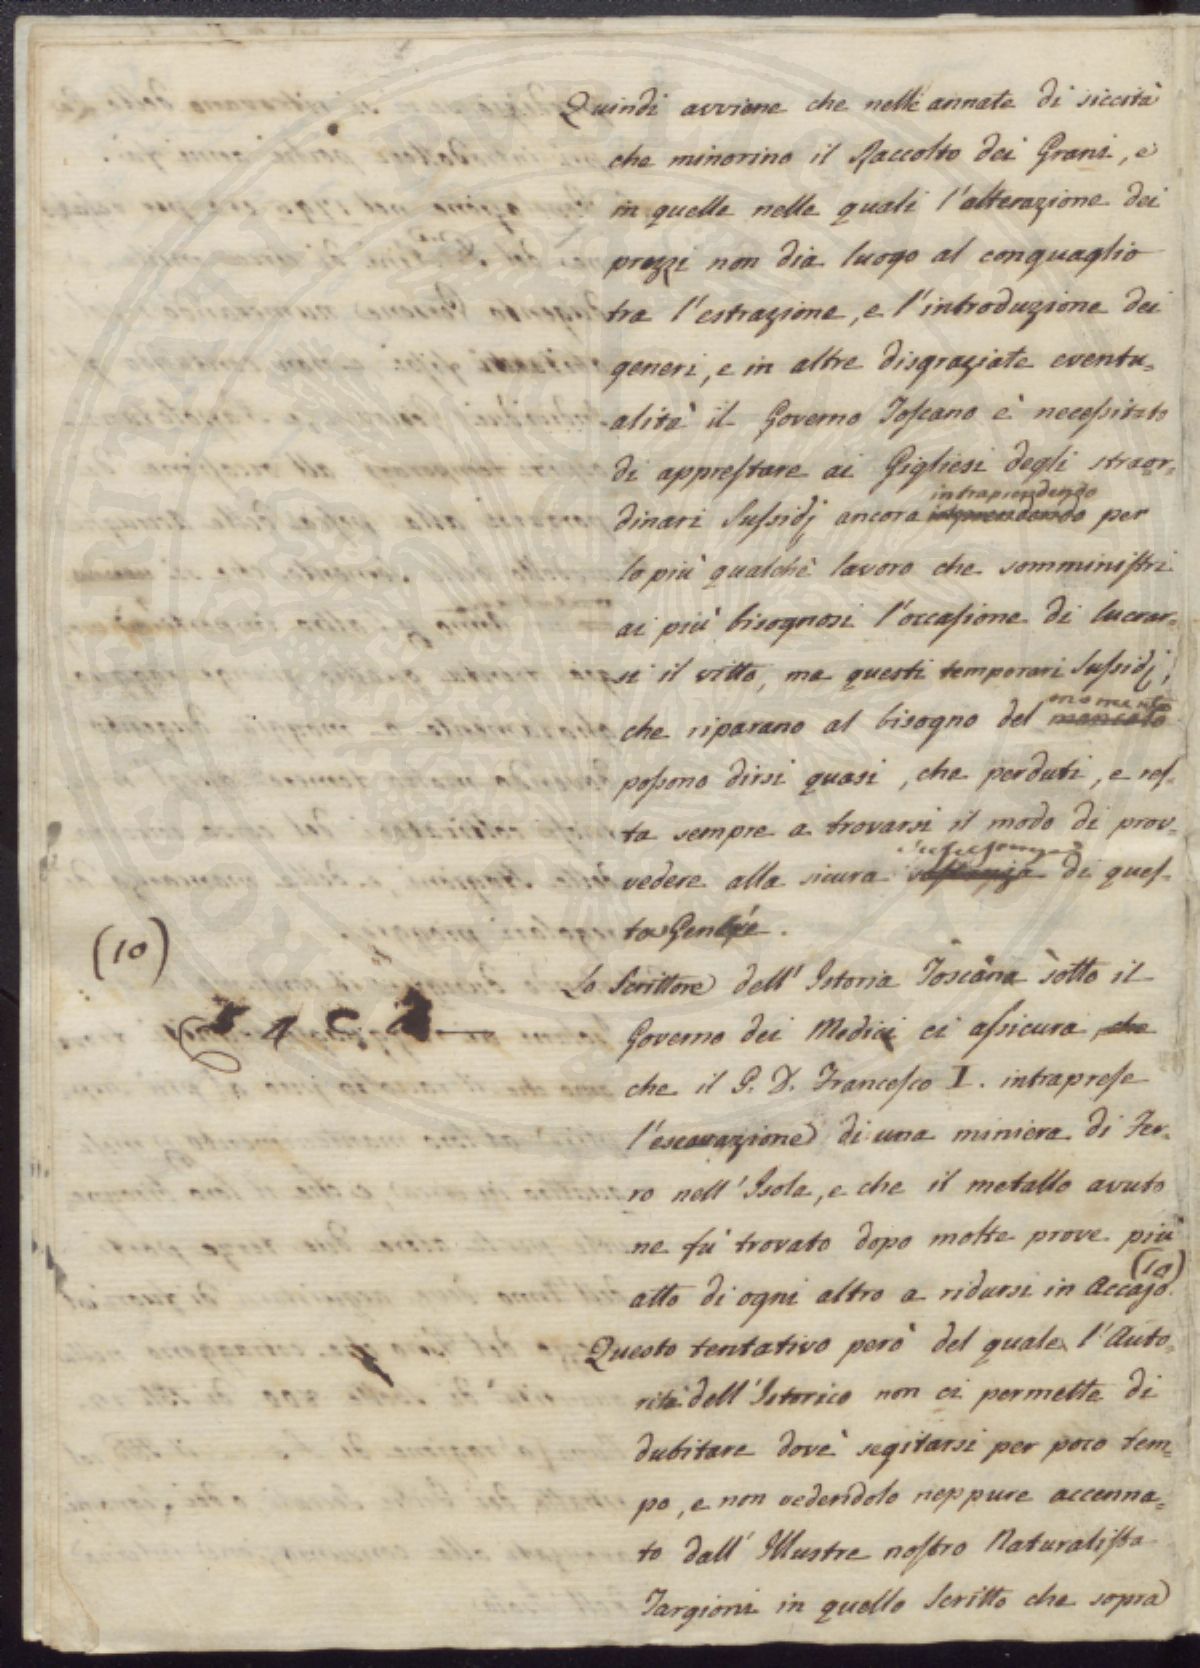 Quindi avviene che nelle annate di siccità
che minorino il Raccolto dei Grani, e
in quelle nelle quali l'alterazione dei
prezzi non dia luogo al conguaglio
tra l'estrazione, e l'introduzione dei
generi, e in altre disgraziate eventu=
alità il Governo Toscano è necessitato
di apprestare ai Gigliesi degli straor=
intraprendendo
dinari Sussidj ancora per
lo più qualchè lavoro che somministri
ai più bisognosi l'occasione di lucrar=
si il vitto, ma questi temporari Sussidj,
momento
che riparano al bisogno del
possono dirsi quasi, che perduti, e res=
ta sempre a trovarsi il modo di prov=
vedere alla sicura di ques=
ta Gente.
(10)
Lo Scrittore dell' Istoria Toscana sotto il
Governo dei Medici ci assicura che
che il G. D. Francesco I. intraprese
l'escavazione di una miniera di Fer=
ro nell'Isola, e che il metallo avuto
ne fù trovato dopo molte prove più
(10)
atto di ogni altro a ridursi in Accajo.
Questo tentativo però del quale l'Auto=
rità dell'Istorico non ci permette di
dubitare dovè segitarsi per poco tem=
po, e non vedendolo neppure accenna=
to dall' Illustre nostro Naturalista
Targioni in quello Scritto che sopra